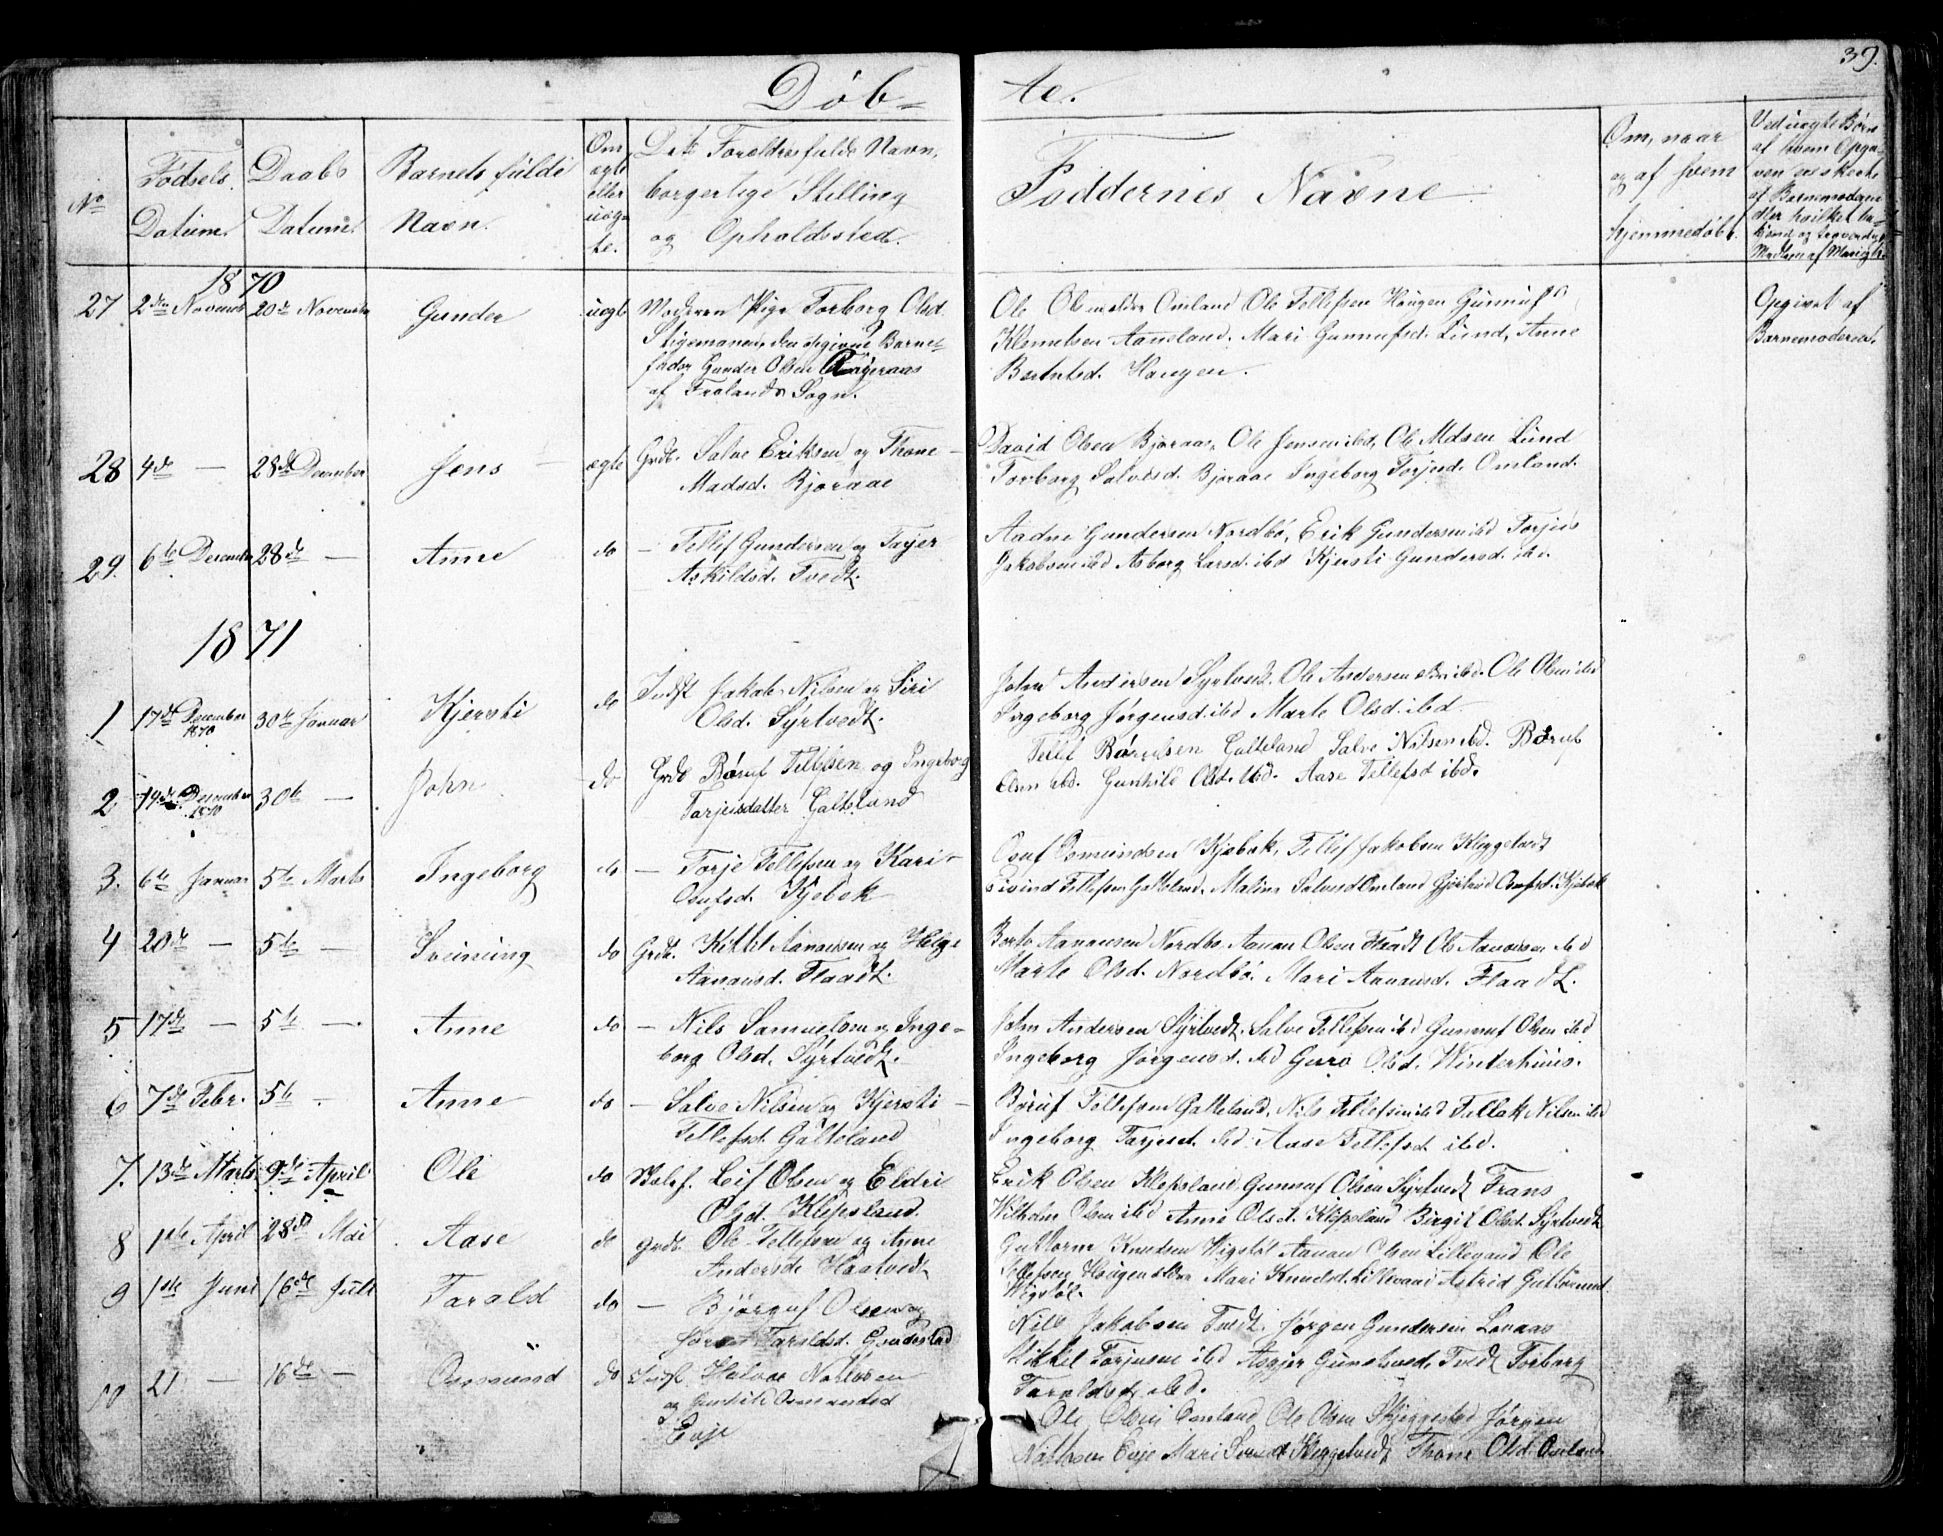 39.
Døb-
te.
No
Fødsels
Datum.
Daabs
Datum
Barnets fulde
Navn.
Om
ægte
eller
uæg-
te.
Foreldres fulde Navn,
borgerlige Stilling
og Opholdssted.
Faddernes Navne
Om, naar
og af hvem
hjemmedøbt.
Ved uægte Børn
af hvem Opga-
ven er skeet
af Barnemoderen
eller hvilket
1870
27 2den Novemb 20de November Gunder uegte Moderen Pige Torborg Olsd.
den opgivne Barne-
fader Gunder Olsen
af Frolands Sogn.
Ole Omland Ole Tellefsen Haugen Gunnuf
Klemetsen Aaneland, Mari Gunnufsd. Lund, Anne
Berntsd. Haugen.
Opgivet af
Barnemoderen.
28 4de — 28de December Jens ægte Grdb. Salve Eriksen og Thone
Madsd. Bjoraae
David Olsen Bjoraas, Ole Jensen ibd, Ole Madsen Lund
Torborg Salvesd. Bjoraae Ingeborg Torjusd. Omland.
29. 6te December 28de — Anne do — Tellef Gundersen og
Askildsd. Tvedt.
Aadne Gundersen Nordbø, Erik Gundersen ibd
Jakobsen ibd Asborg Larsd. ibd Kjersti Gundersd. ibd.
1871
1 17de December 1870 30te Januar Kjersti do Indst Jakob Nilsen og Siri
Olsd. Syrtvedt.
John Andersen Syrtvedt. Ole Andersen ibd. Ole Olsen ibd
Ingeborg Jørgensd. ibd Marte Olsd. ibd
2 14de December 1870 30te — John do Grdb Børuf Tellefsen og Ingeborg
Tarjeisdatter Galteland
Tellef Børufsen Galteland Salve Nilsen ibd. Børuf
ibd. Gunhild Olsd. ibd. Aase Tellefsd ibd.
3. 6te Januar 5te Marts Ingeborg do — Torje Tellefsen og Kari
Osufsd. Kjebek
Osuf Osmundsen Kjebek, Tellef Jakobsen
Eivind Tellefsen Galteland, Malene Salvesd Omland Osufsd. Kjebek
4 20de — 5te — do Grdb. Kittel Aanansen og Helge
Aanansd. Flaadt.
Aanansen Nordbø Aanan Olsen Flaadt Ole Aanansen ibd
Marte Olsd. Nordbø. Mari Aanansd. Flaadt.
5 17de — 5te — Anne do — Nils Samuelsen og Inge-
borg Olsd. Syrtvedt.
John Andersen Syrtvedt. Salve Tellefsen ibd Gunnuf Olsen ibd
Ingeborg Jørgensd. ibd Guro Olsd. Winterhuus.
6 7de Febr. 5te — Anne do — Salve Nilsen og Kjersti
Tellefsd. Galteland
Børuf Tellefsen Galteland. Nils Tellefsen ibd Tellak Nilsen ibd
Ingeborg Tarjesd. ibd. Aase Tellefsd ibd.
7. 13de Marts 9de April Ole do Leif Olsen og Eldri
Olsd. Klepsland.
Erik Olsen Klepsland Gunnuf Olsen Syrtvedt Frans
Wilhelm Olsen ibd Anne Olsd. Klepsland Birgit Olsd. Syrtvedt
8 1ste April 28de Mai Aase do Grdb. Ole Tellefsen og Anne
Andersd. Haatvedt
Guttorm Knudsen Wigstøl Aanan Olsen Lillegaard Ole
Tellefsen Haugen Mari Knudsd. Astrid Guttormsd
Wigstøl.
9 1ste Juni 16de Juli Tarald do — Bjørguf Olsen og
Taraldsd.
Nils Jakobsen Tvedt. Jørgen Gundersen
Mikkel Torjusen ibd Asgjer Tvedt Torborg
Taraldsd. ibd.
10 21 — 16de — Osmund do Halvor
og Gunhild Osmundsd
Evje
Ole Olsen Omland Ole Olsen Jørgen
Evje Mari Thone Olsd. Omland